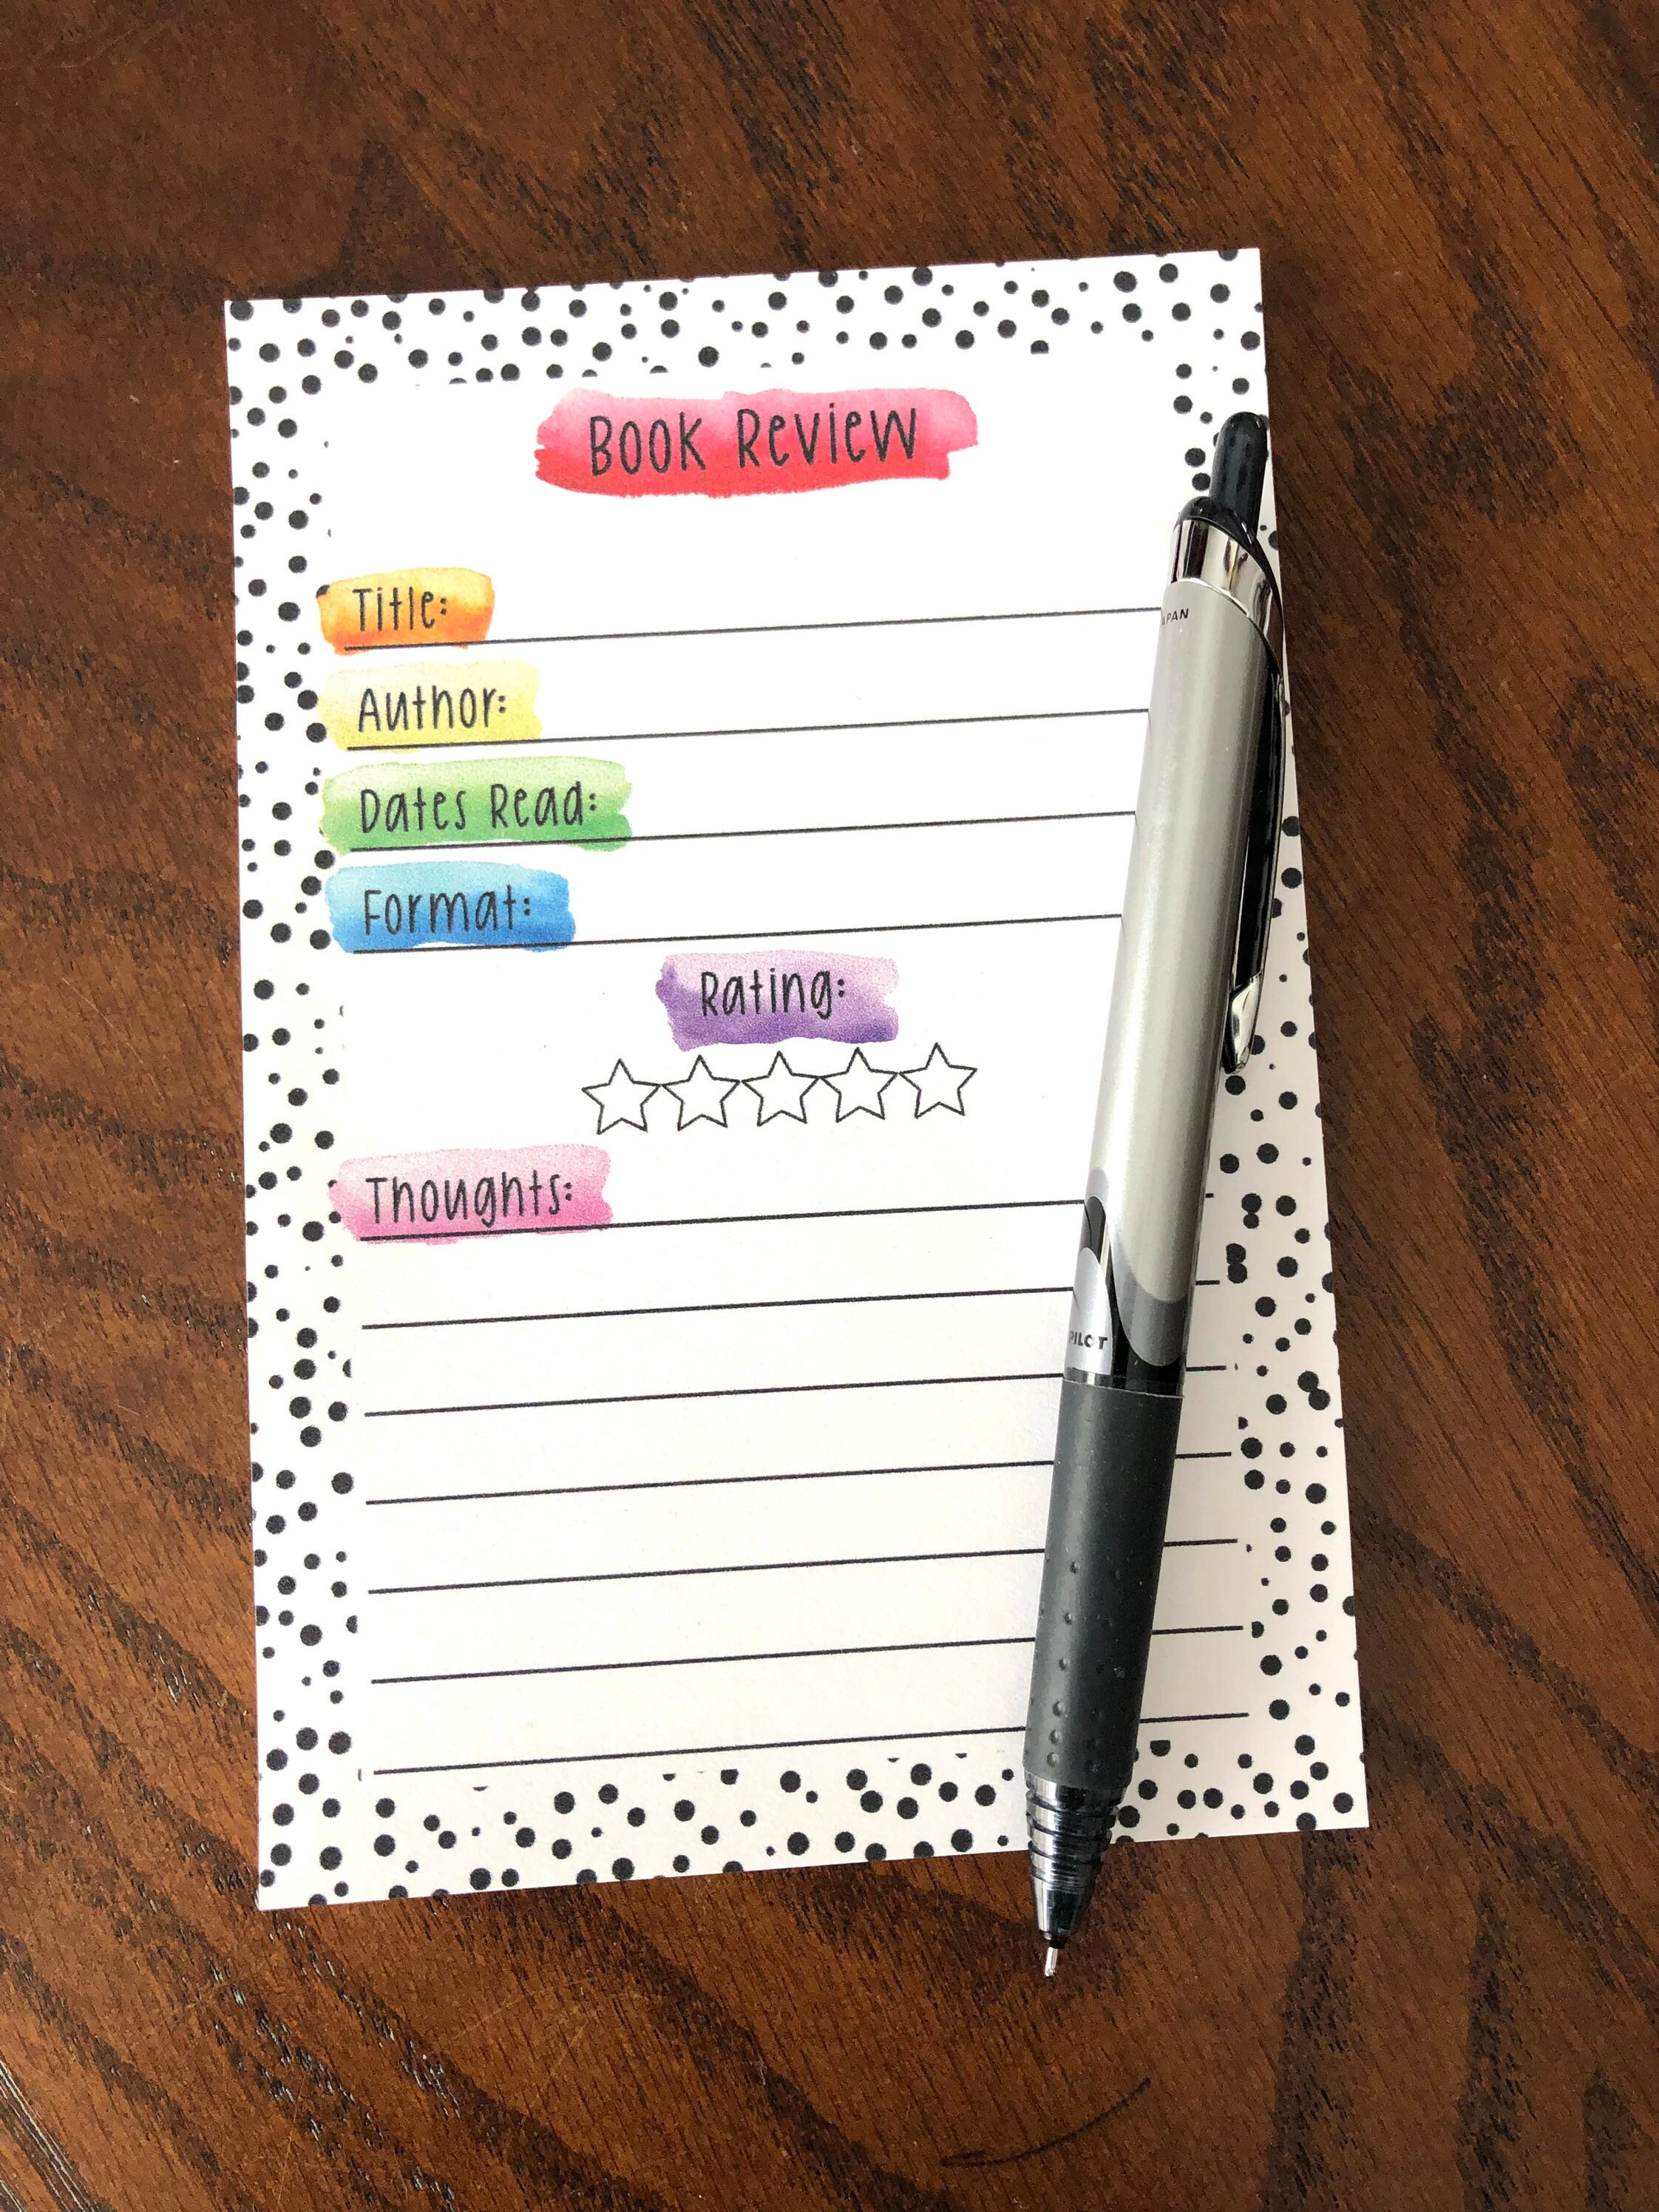 Book Review
Title:
Author:
Dates Read:
Format:
Rating:
Thoughts:
PILOT